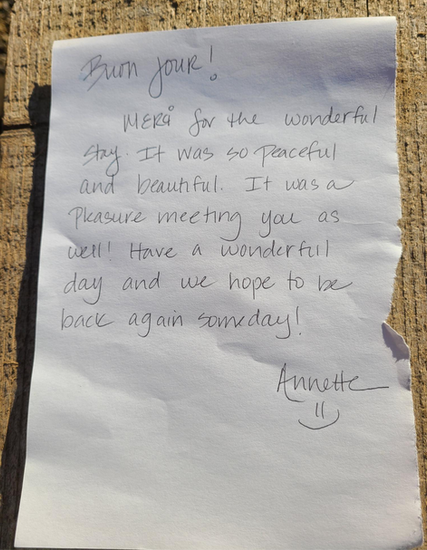 Buon jour!
Merci for the wonderful
stay. It was so peaceful
and beautiful. It was a
pleasure meeting you as
well! Have a wonderfull
day and we hope to be
back again someday!
Annette